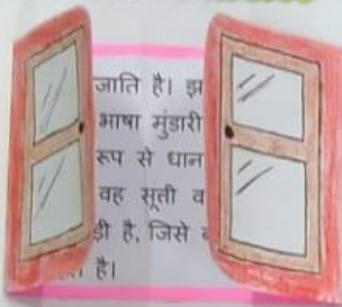 जाति है। झ
भाषा मुंडारी
रूप से धान
वह सूती व
है, जिसे
है।